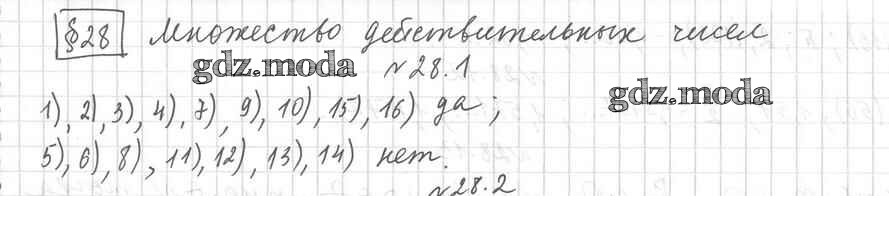 §28 Множество действительных чисел
gdz.moda №28.1
gdz.moda
1), 2), 3), 4), 7), 9), 10), 15), 16) да;
5), 6), 8), 11), 12), 13), 14) нет.
№28.2